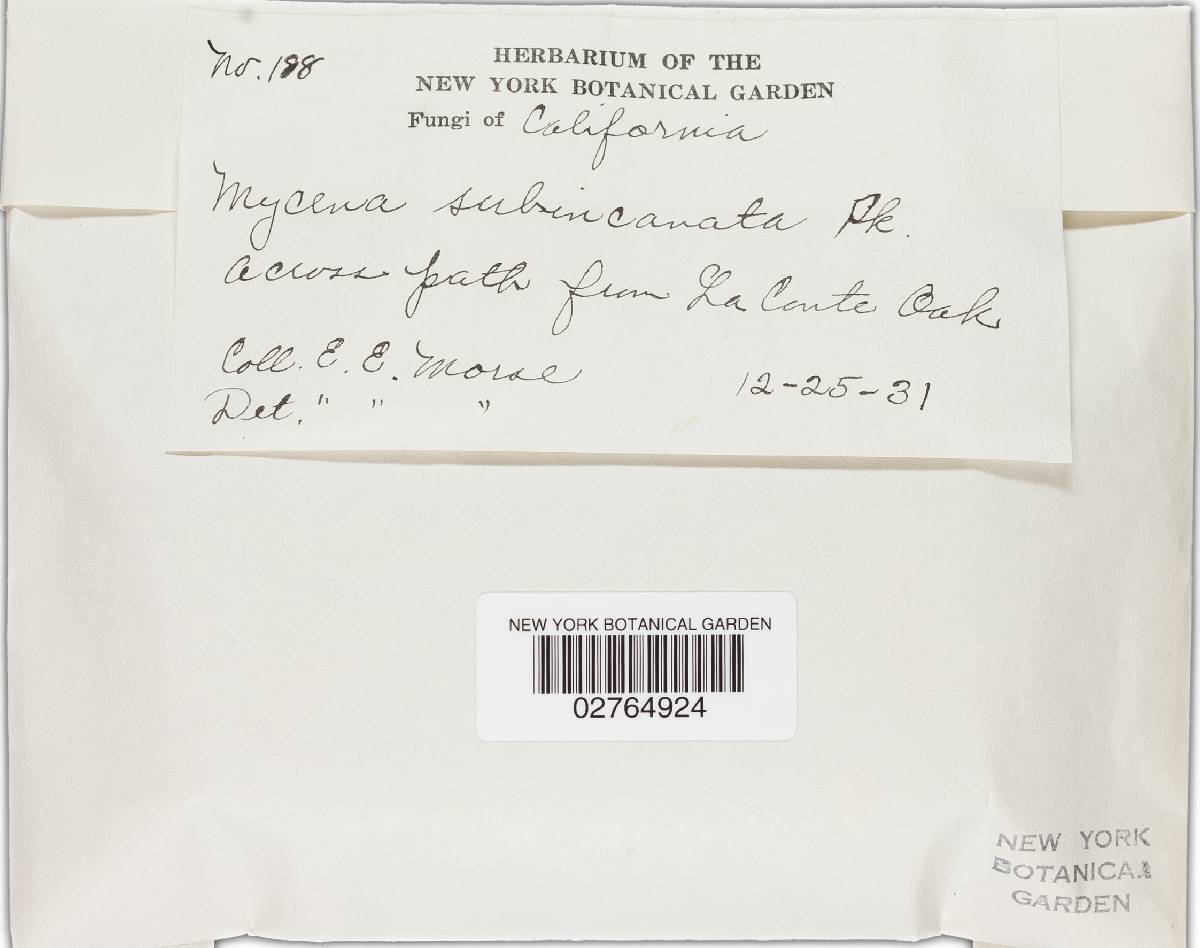 No. 188
HERBARIUM OF THE
NEW YORK BOTANICAL GARDEN
Fungi of California
Mycena subincanata Pk.
Across path from La Conte Oak
Coll. E. E. Morse
12-25-31
Det. " " "
NEW YORK BOTANICAL GARDEN
02764924
NEW YORK
BOTANICAL
GARDEN